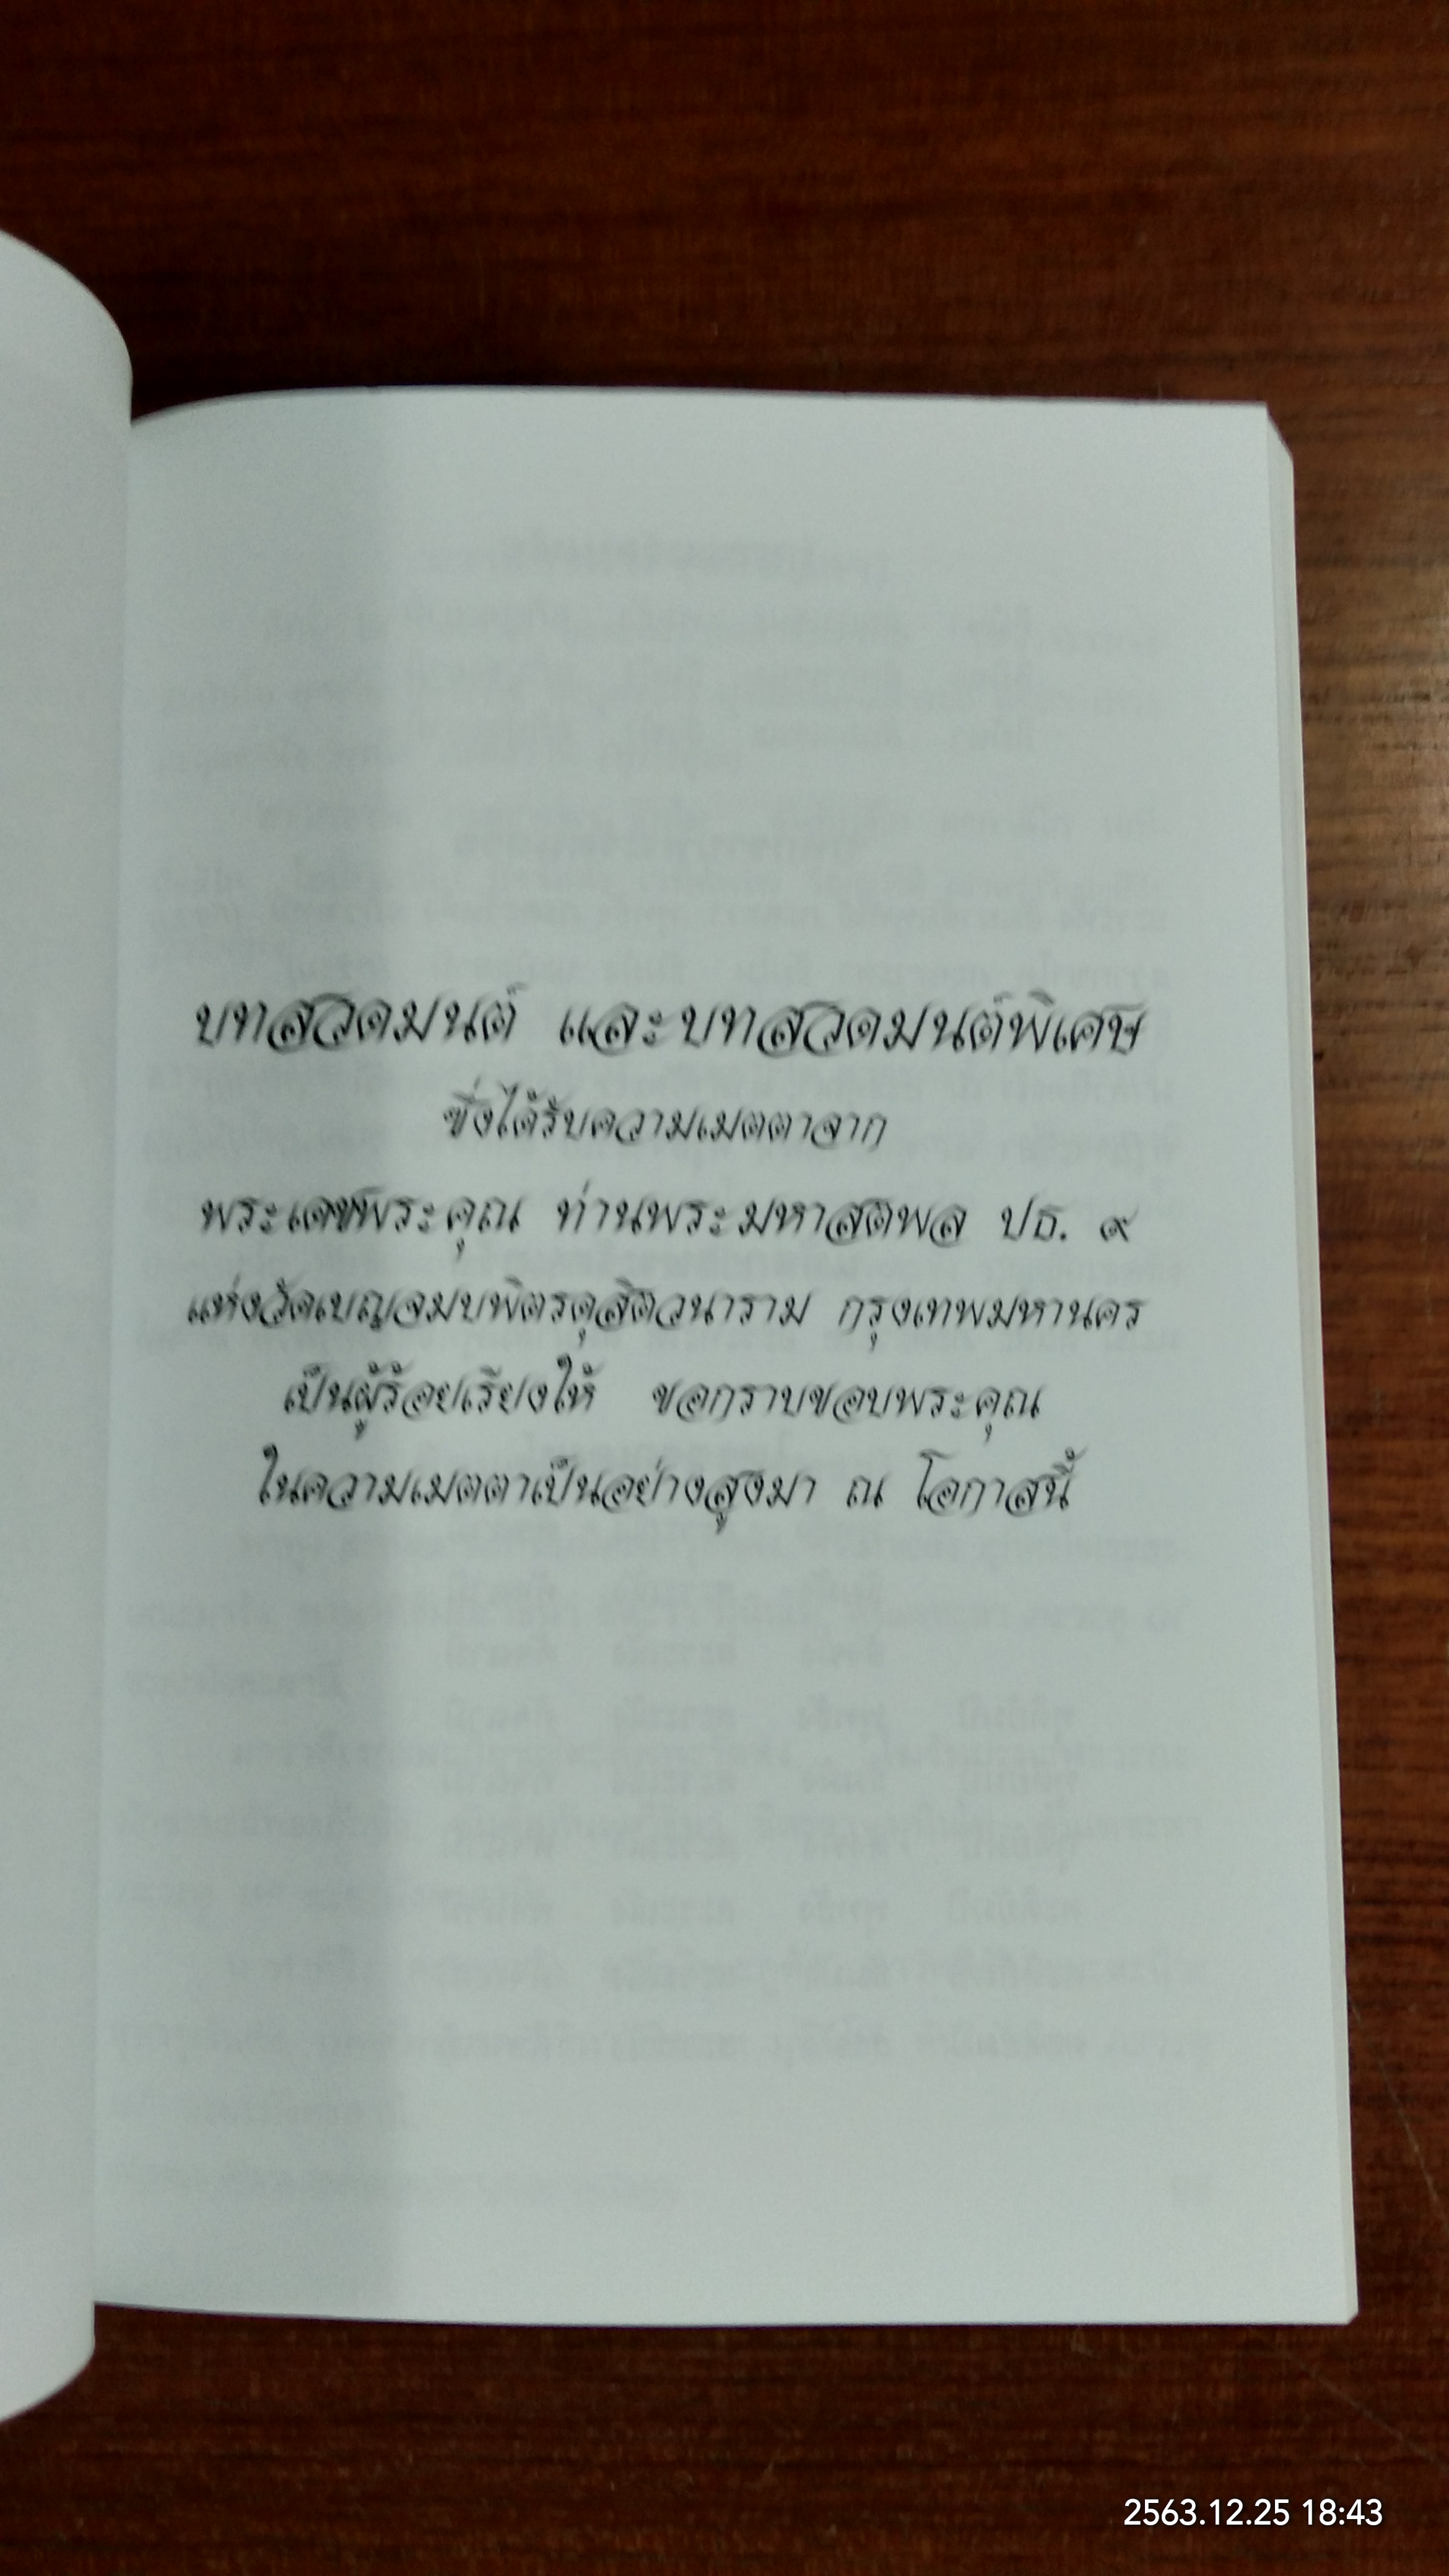 บทสวดมนต์ และบทสวดมนต์พิเศษ
ซึ่งได้รับความเมตตาจาก
พระเดชพระคุณ ท่านพระมหาสติพล ปธ. ๙
แห่งวัดเบญจมบพิตรดุสิตวนาราม กรุงเทพมหานคร
เป็นผู้ร้อยเรียงให้ ขอกราบขอบพระคุณ
ในความเมตตาเป็นอย่างสูงมา ณ โอกาสนี้
2563.12.25 18:43